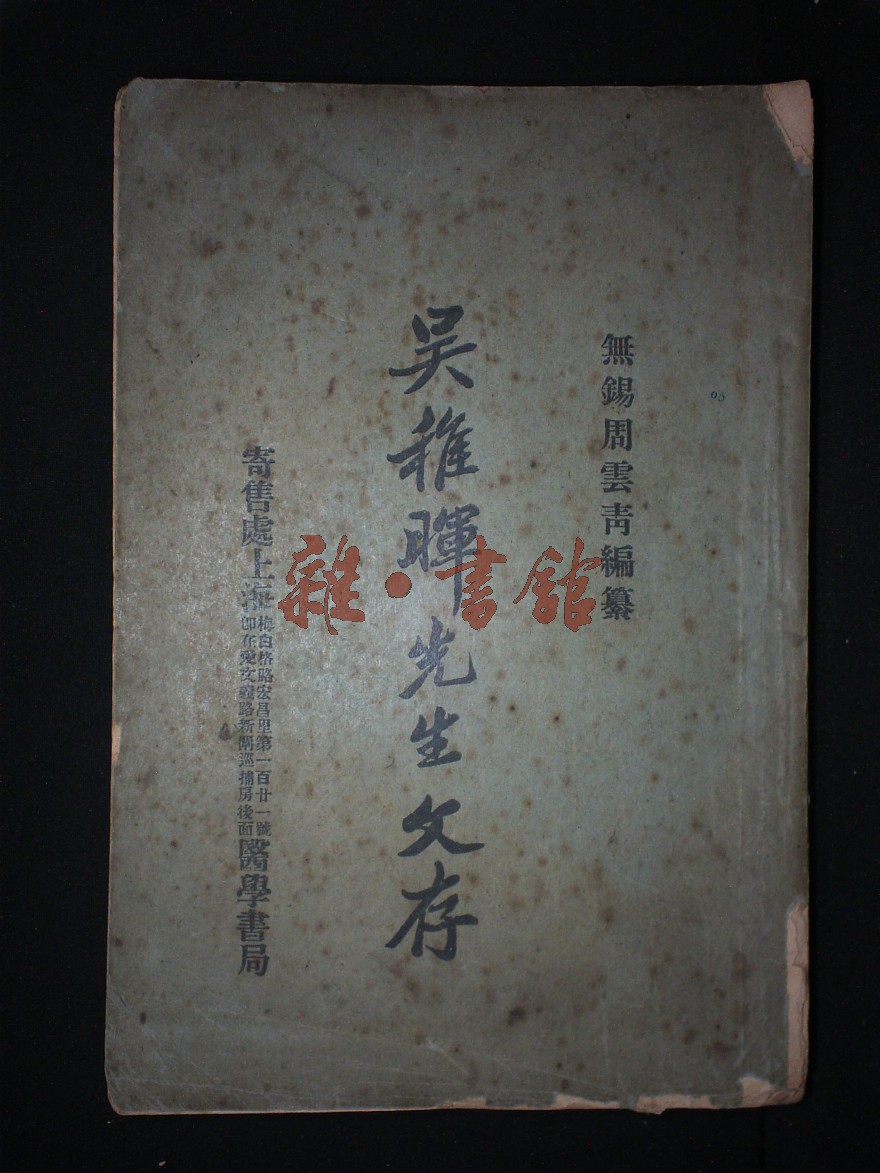 無錫周雲青編纂
吴稚暉先生文存
寄售處上海
梅白格路宏昌里第一百廿一號
卽在愛文義路新閘巡捕房後面
醫學書局
雜·書館